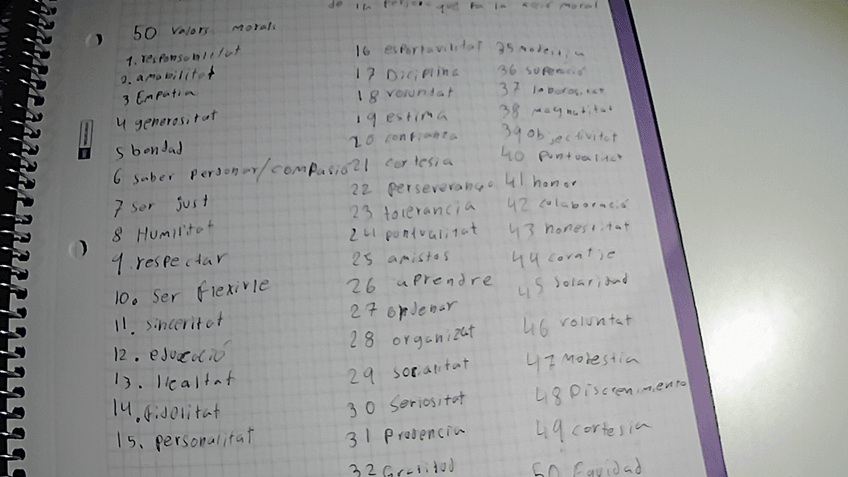 la
moral
50 valors morals
1. responsabilitat
2. amabilitat
3 Empatia
4 generositat
5 bondad
6 saber perdonar/compasio
7 Ser just
8 Humilitat
9. respectar
10. Ser flexirle
11. sinceritat
12. educació
13. llealtat
14. fidelitat
15. personalitat
16 esportavilitat
17 Diciplina
18 voluntat
19 estima
20 confianza
21 cortesia
22 perseverança
23 tolerancia
24 pontualitat
25 amistos
26 aprendre
27 ordenar
28 organizat
29 socalitat
30 Seriositat
31 Prudencia
32 Gratitud
35 Modestia
36 superació
37 laborositat
38
39 objectivitat
40 Pontualitat
41 honor
42 colaboració
43 honestitat
44 coratje
45 Solaridad
46 voluntat
47 Modestia
48 Discrenimento
49 cortesia
50 Equidad